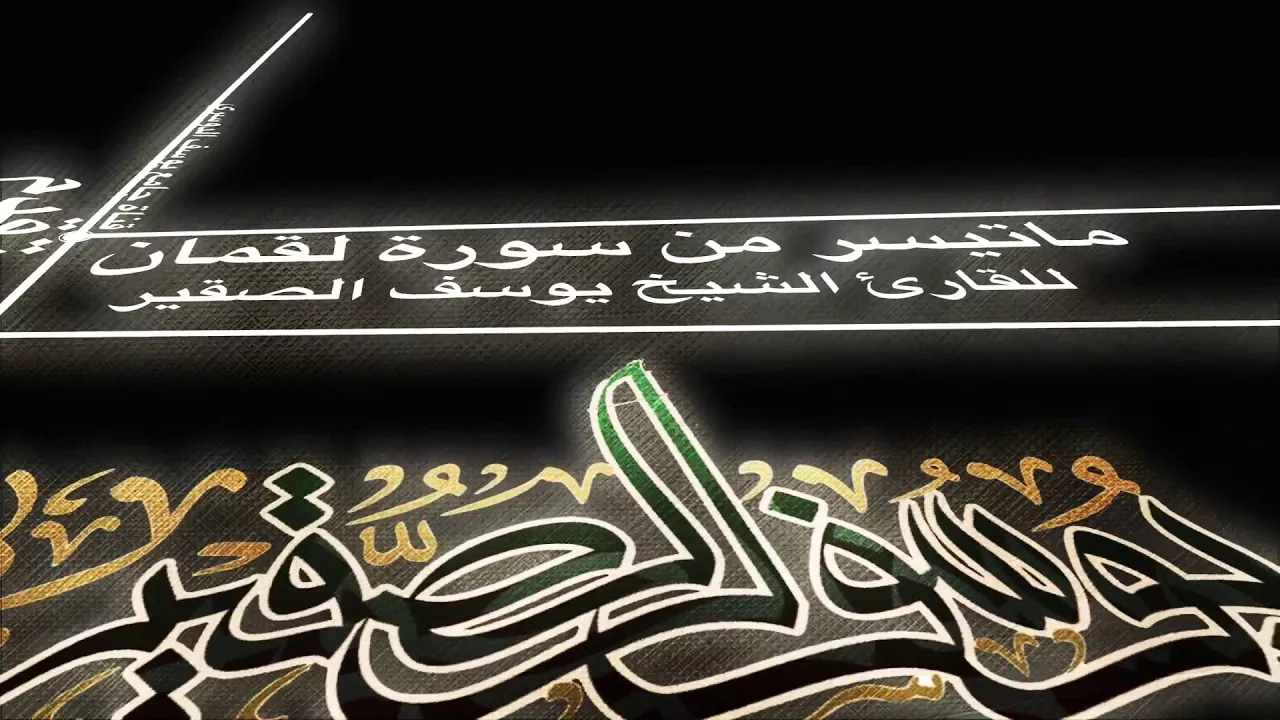 ماتيسر من سورة لقمان
للقارئ الشيخ يوسف الصقير
يوسف الصقير